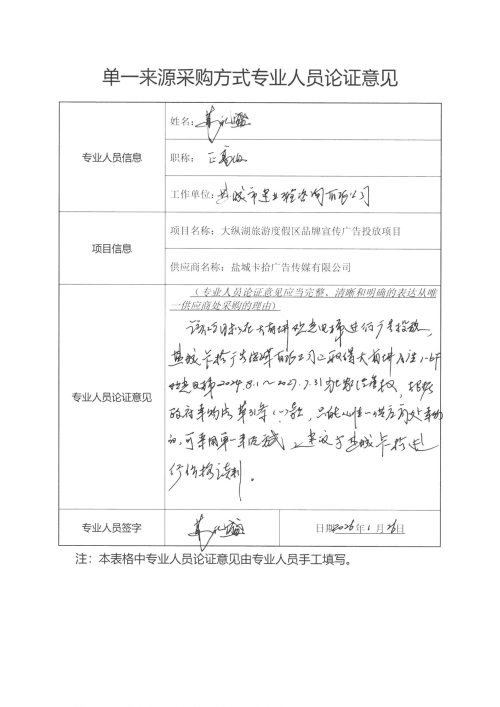 单一来源采购方式专业人员论证意见
专业人员信息
姓名:
职称: 正高级
工作单位: 盐城市建业工程咨询有限公司
项目信息
项目名称: 大纵湖旅游度假区品牌宣传广告投放项目
供应商名称: 盐城卡拾广告传媒有限公司
专业人员论证意见
(专业人员论证意见应当完整、清晰和明确的表达从唯
一供应商处采购的理由)
该项目拟在大有境 电梯进行广告投放,
盐城卡拾广告传媒有限公司已取得大有境 1-6F
电梯2024.8.1~2027.7.31 权, 根据
政府采购法第31条(一)款, 只能从唯一供应商处采购
的, 可采用单一来源方式, 建议与盐城卡拾进
行价格谈判。
专业人员签字
日期2026年1月26日
注: 本表格中专业人员论证意见由专业人员手工填写。